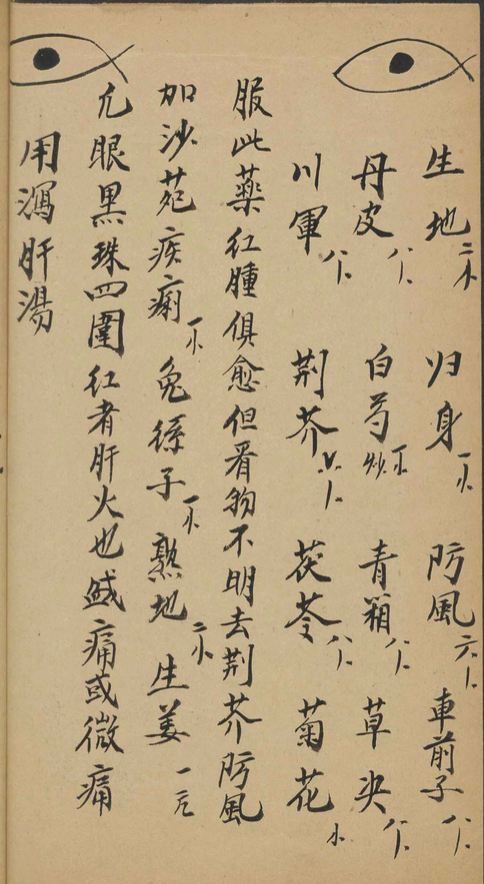 生地二小 归身一小 防風六卜 車前子八卜
丹皮八卜 白芍炒一小 青箱八卜 草决八卜
川軍八卜 荆芥八卜 茯苓八卜 菊花小
服此薬红腫俱愈但看物不明去荆芥防風
加沙苑疾藜一小 兔絲子一小 熟地二小 生姜一片
凢眼黒珠四圍红者肝火也或痛或微痛
用瀉肝湯